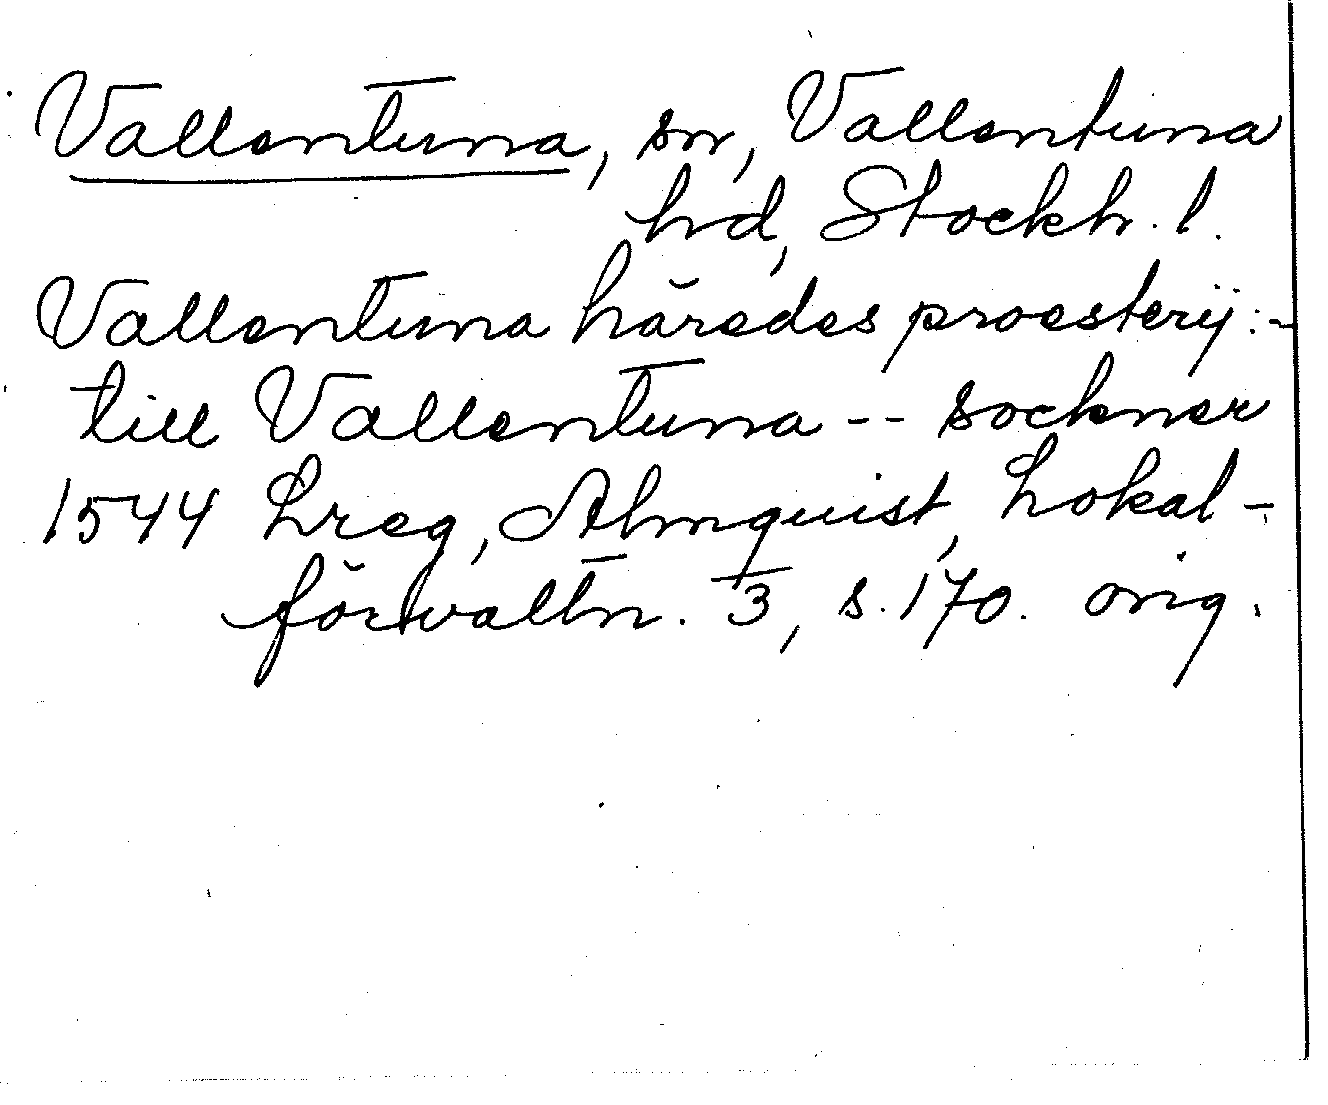 Vallentuna, sn, Vallentuna
hd, Stockh. l.
Vallentuna häredes proesterij:-
till Vallentuna -- sockner
1544 Lreg, Almquist, Lokal-
förvaltn. 3, s. 170. orig.